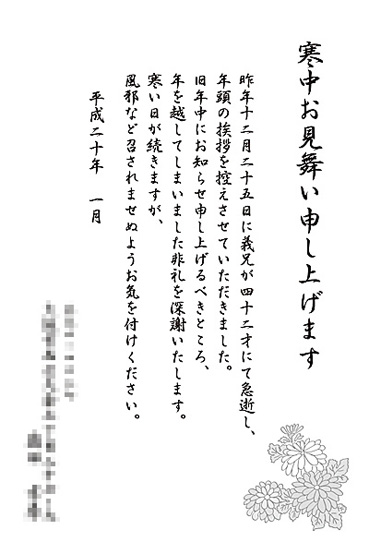 寒中お見舞い申し上げます
昨年十二月二十五日に義兄が四十二才にて急逝し、
年頭の挨拶を控えさせていただきました。
旧年中にお知らせ申し上げるべきところ、
年を越してしまいました非礼を深謝いたします。
寒い日が続きますが、
風邪など召されませぬようお気を付けください。
平成二十年　一月